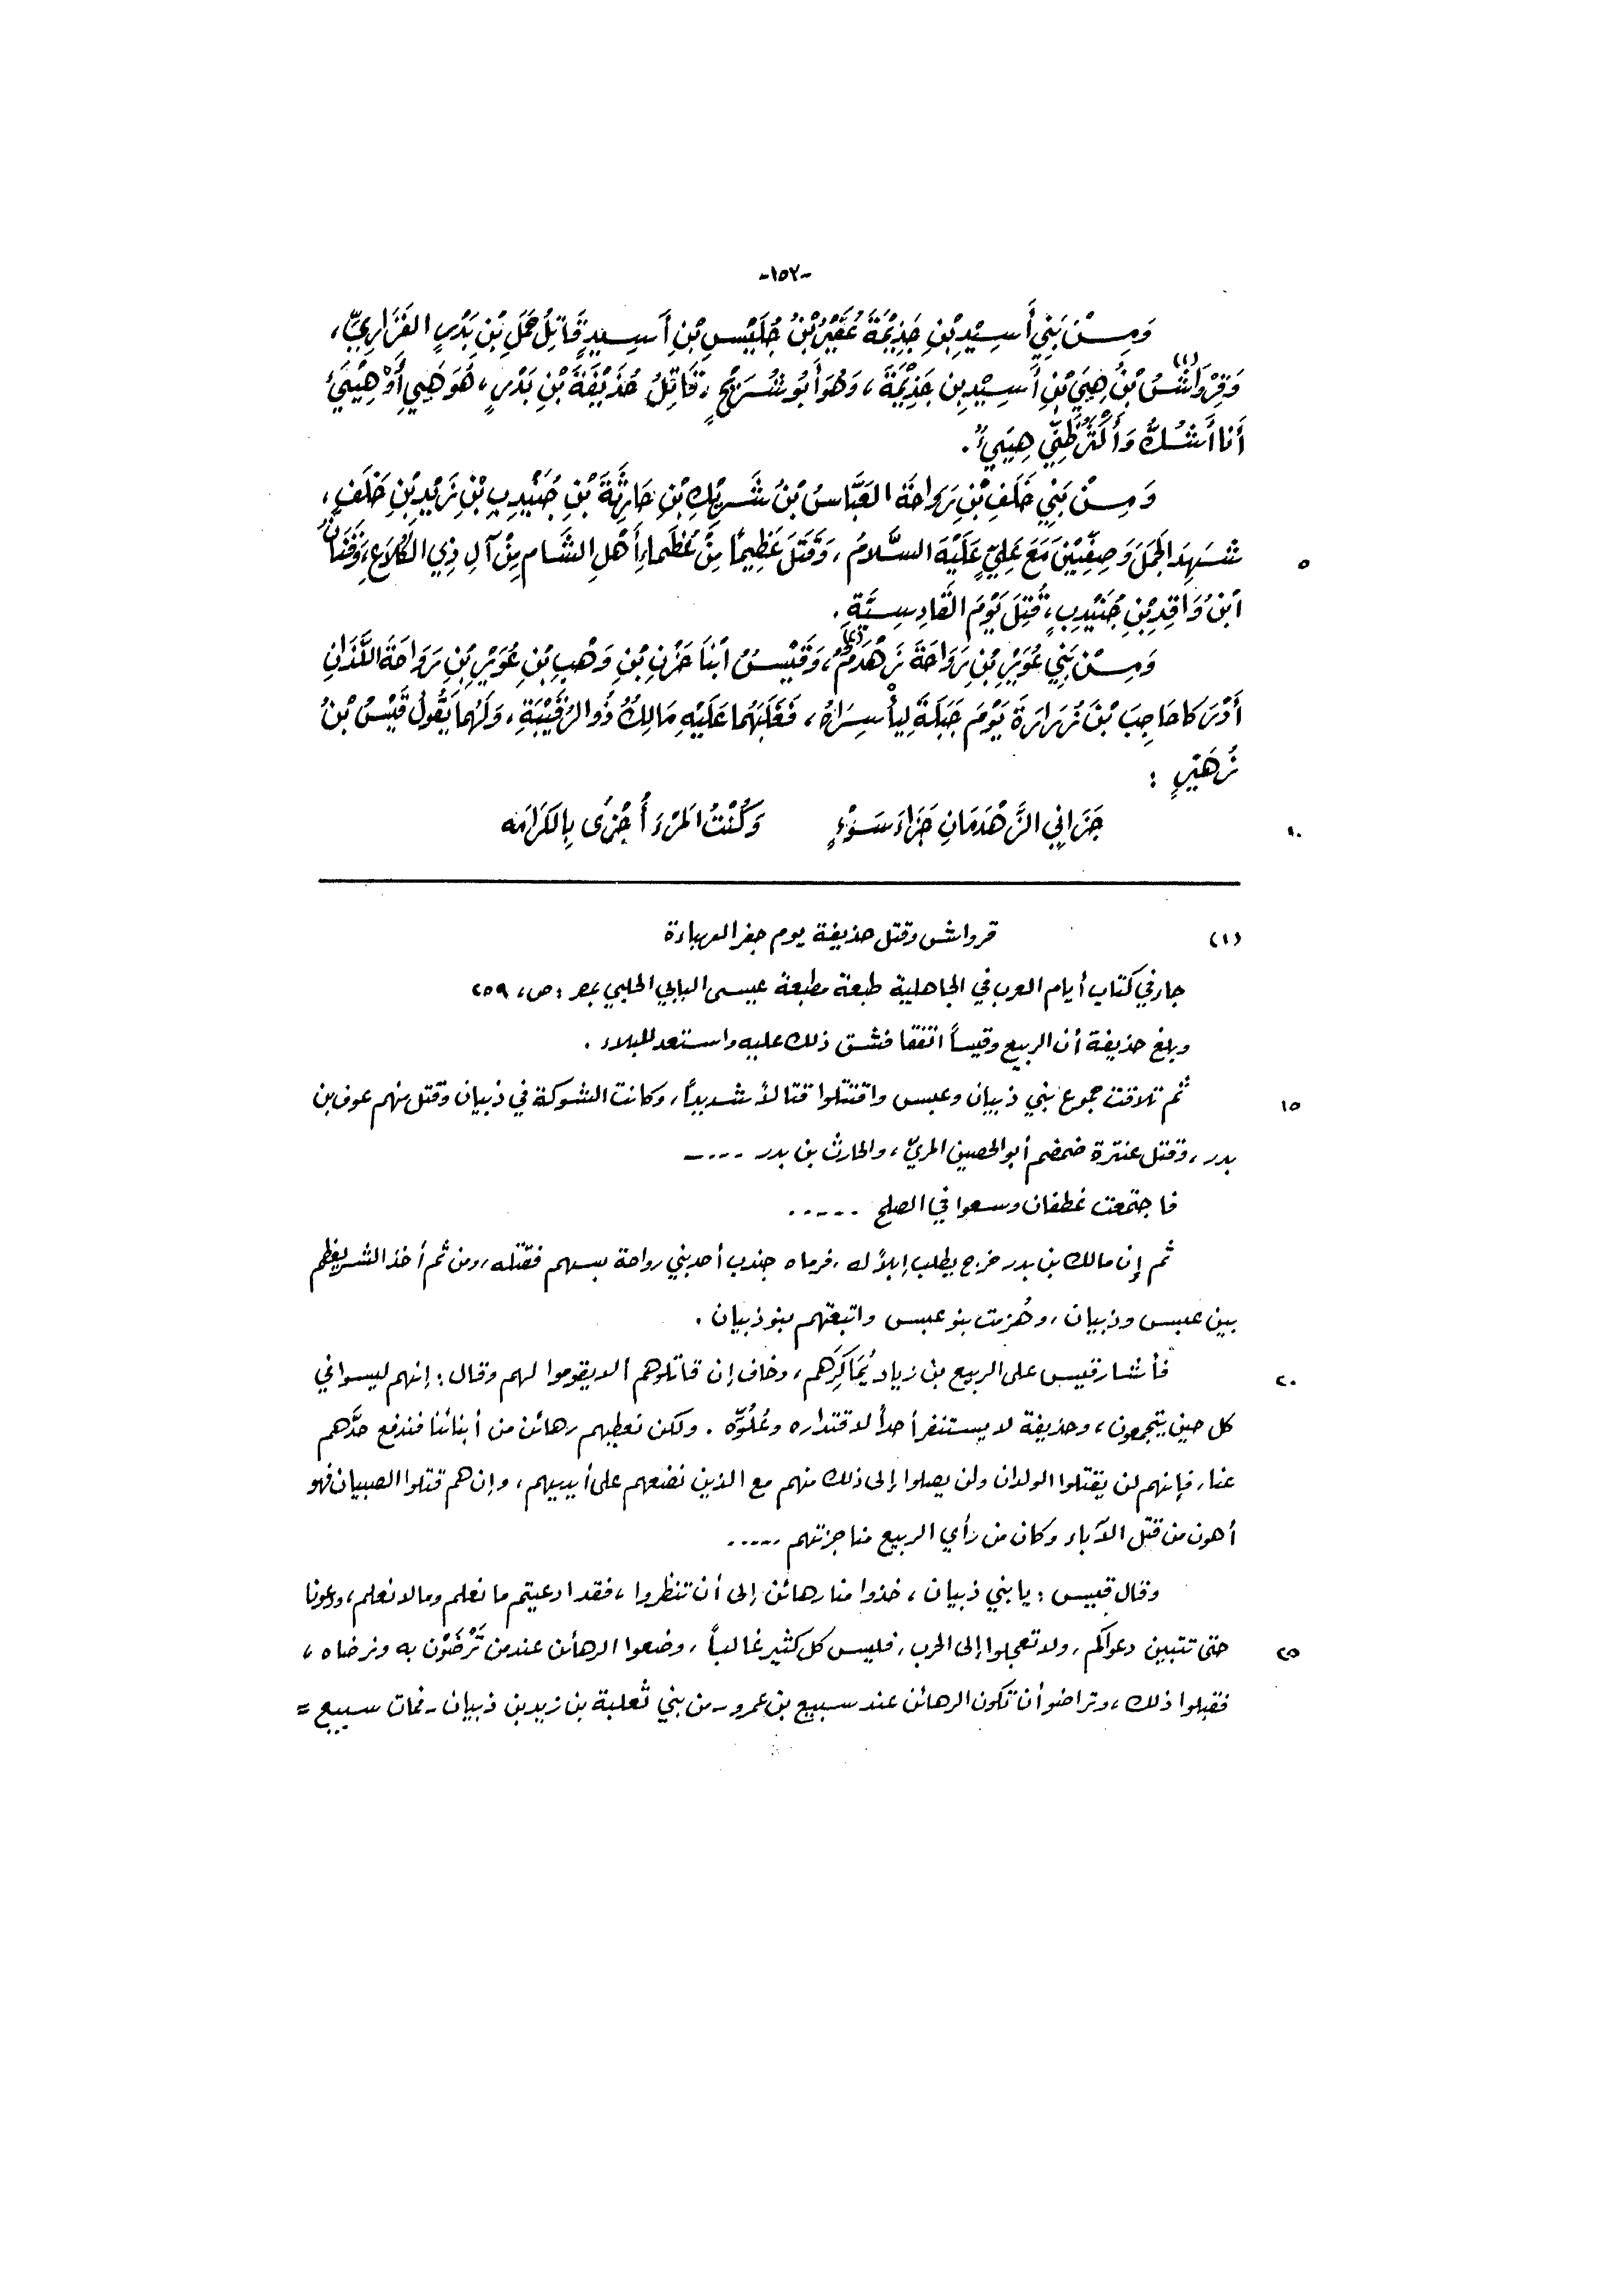 -١٥٢-
وَمِنْ بَنِي أَسِيْدِ بْنِ جَذِيْمَةَ عُقَيْرُ بْنُ حُلَيْسِ بْنِ أَسِيدٍ قَاتِلُ حَمَلِ بْنِ بَدْرٍ الفَزَارِيِّ،
وَقِرْوَاشُ(١) بْنُ هِنِيِّ بْنِ أَسِيْدِ بنِ جَذِيْمَةَ، وَهُوَ أَبُو شُرَيْحٍ، قَاتِلُ حُذَيْفَةَ بْنِ بَدْرٍ، هُوَ أَوْ
أَنَا أَشُكُّ وَأَكْثَرُ ظَنِّي .
وَمِنْ بَنِي خَلَفِ بْنِ رَوَاحَةَ العَبَّاسُ بْنُ شَرِيْكِ بْنِ حَارِثَةَ بْنِ جُنَيْدِبِ بْنِ زَيْدِ بْنِ خَلَفٍ،
شَهِدَ الجَمَلَ وَصِفَّيْنَ مَعَ عَلِيٍّ عَلَيْهِ السَّلامُ، وَقَتَلَ عَظِيمًا مِنْ عُظَمَاءِ أَهْلِ الشَّامِ مِنْ آلِ ذِي الكَلَاعِ،
٥
ابْنُ وَاقِدِ بْنِ جُنَيْدِبٍ، قُتِلَ يَوْمَ القَادِسِيَّةِ.
وَمِنْ بَنِي عُوَيْرِ بْنِ رَوَاحَةَ زَهْدَمُ(٢)، وَقَيْسُ ابْنَا حَزْنِ بْنِ وَهْبِ بْنِ عُوَيْرِ بْنِ رَوَاحَةَ اللَّذَانِ
أَدْرَكَا حَاجِبَ بْنَ زُرَارَةَ يَوْمَ جَبَلَةَ لِيَأْسِرَاهُ، فَغَلَبَهُمَا عَلَيْهِ مَالِكٌ ذُو الرُّقَيْبَةِ، وَلَهُمَا يَقُولُ قَيْسُ بْنُ
زُهَيْرٍ :
جَزَانِي الزَّهْدَمَانِ جَزَاءَ سَوْءٍ وَكُنْتُ المَرْءَ أُجْزَى بِالكَرَامَه
١٠
(١) قرواش وقتل حذيفة يوم جفر الهباءة
جاء في كتاب أيام العرب في الجاهلية طبعة مطبعة عيسى البابي الحلبي بمصر : ص، ٢٥٩
وبلغ حذيفة أن الربيع وقيساً اتفقا فشق ذلك عليه واستعد للبلاء .
ثم تلاقت جموع بني ذبيان وعبس واقتتلوا قتالاً شديداً، وكانت الشوكة في ذبيان وقتل منهم عوف بن
١٥
بدر، وقتل عنترة ضمضم أبو الحصين المريّ، والحارث بن بدر ....
فاجتمعت غطفان وسعوا في الصلح .....
ثم إن مالك بن بدر خرج يطلب إبلاً له، فرماه جندب أحد بني رواحة بسهم فقتله، ومن ثم أخذ الشر يعظم
بين عبس وذبيان، وهُزمت بنو عبس واتبعتهم بنو ذبيان .
فأشار قيس على الربيع بن زياد يُمَاكِرَهم، وخاف إن قاتلوهم ألا يقوموا لهم وقال : إنهم ليسوا في
٢٠
كل حين يتجمعون، وحذيفة لا يستنفر أحداً لاقتداره وعُلُوّه . ولكن نعطيهم رهائن من أبنائنا فندفع حدَّهم
عنا، فإنهم لن يقتلوا الولدان ولن يصلوا إلى ذلك منهم مع الذين نضعهم على أيديهم، وإن هم قتلوا الصبيان فهو
أهون من قتل الآباء وكان من رأي الربيع مناجزتهم .....
وقال قيس : يا بني ذبيان، خذوا منا رهائن إلى أن تنظروا، فقد ادعيتم ما نعلم وما لا نعلم، ودعونا
حتى تتبين دعواكم، ولا تعجلوا إلى الحرب، فليس كل كثير غالباً، وضعوا الرهائن عند من تَرْضَوْن به ونرضاه،
٢٥
فقبلوا ذلك، وتراضوا أن تكون الرهائن عند سبيع بن عمرو - من بني ثعلبة بن زيد بن ذبيان - فمات سبيع =